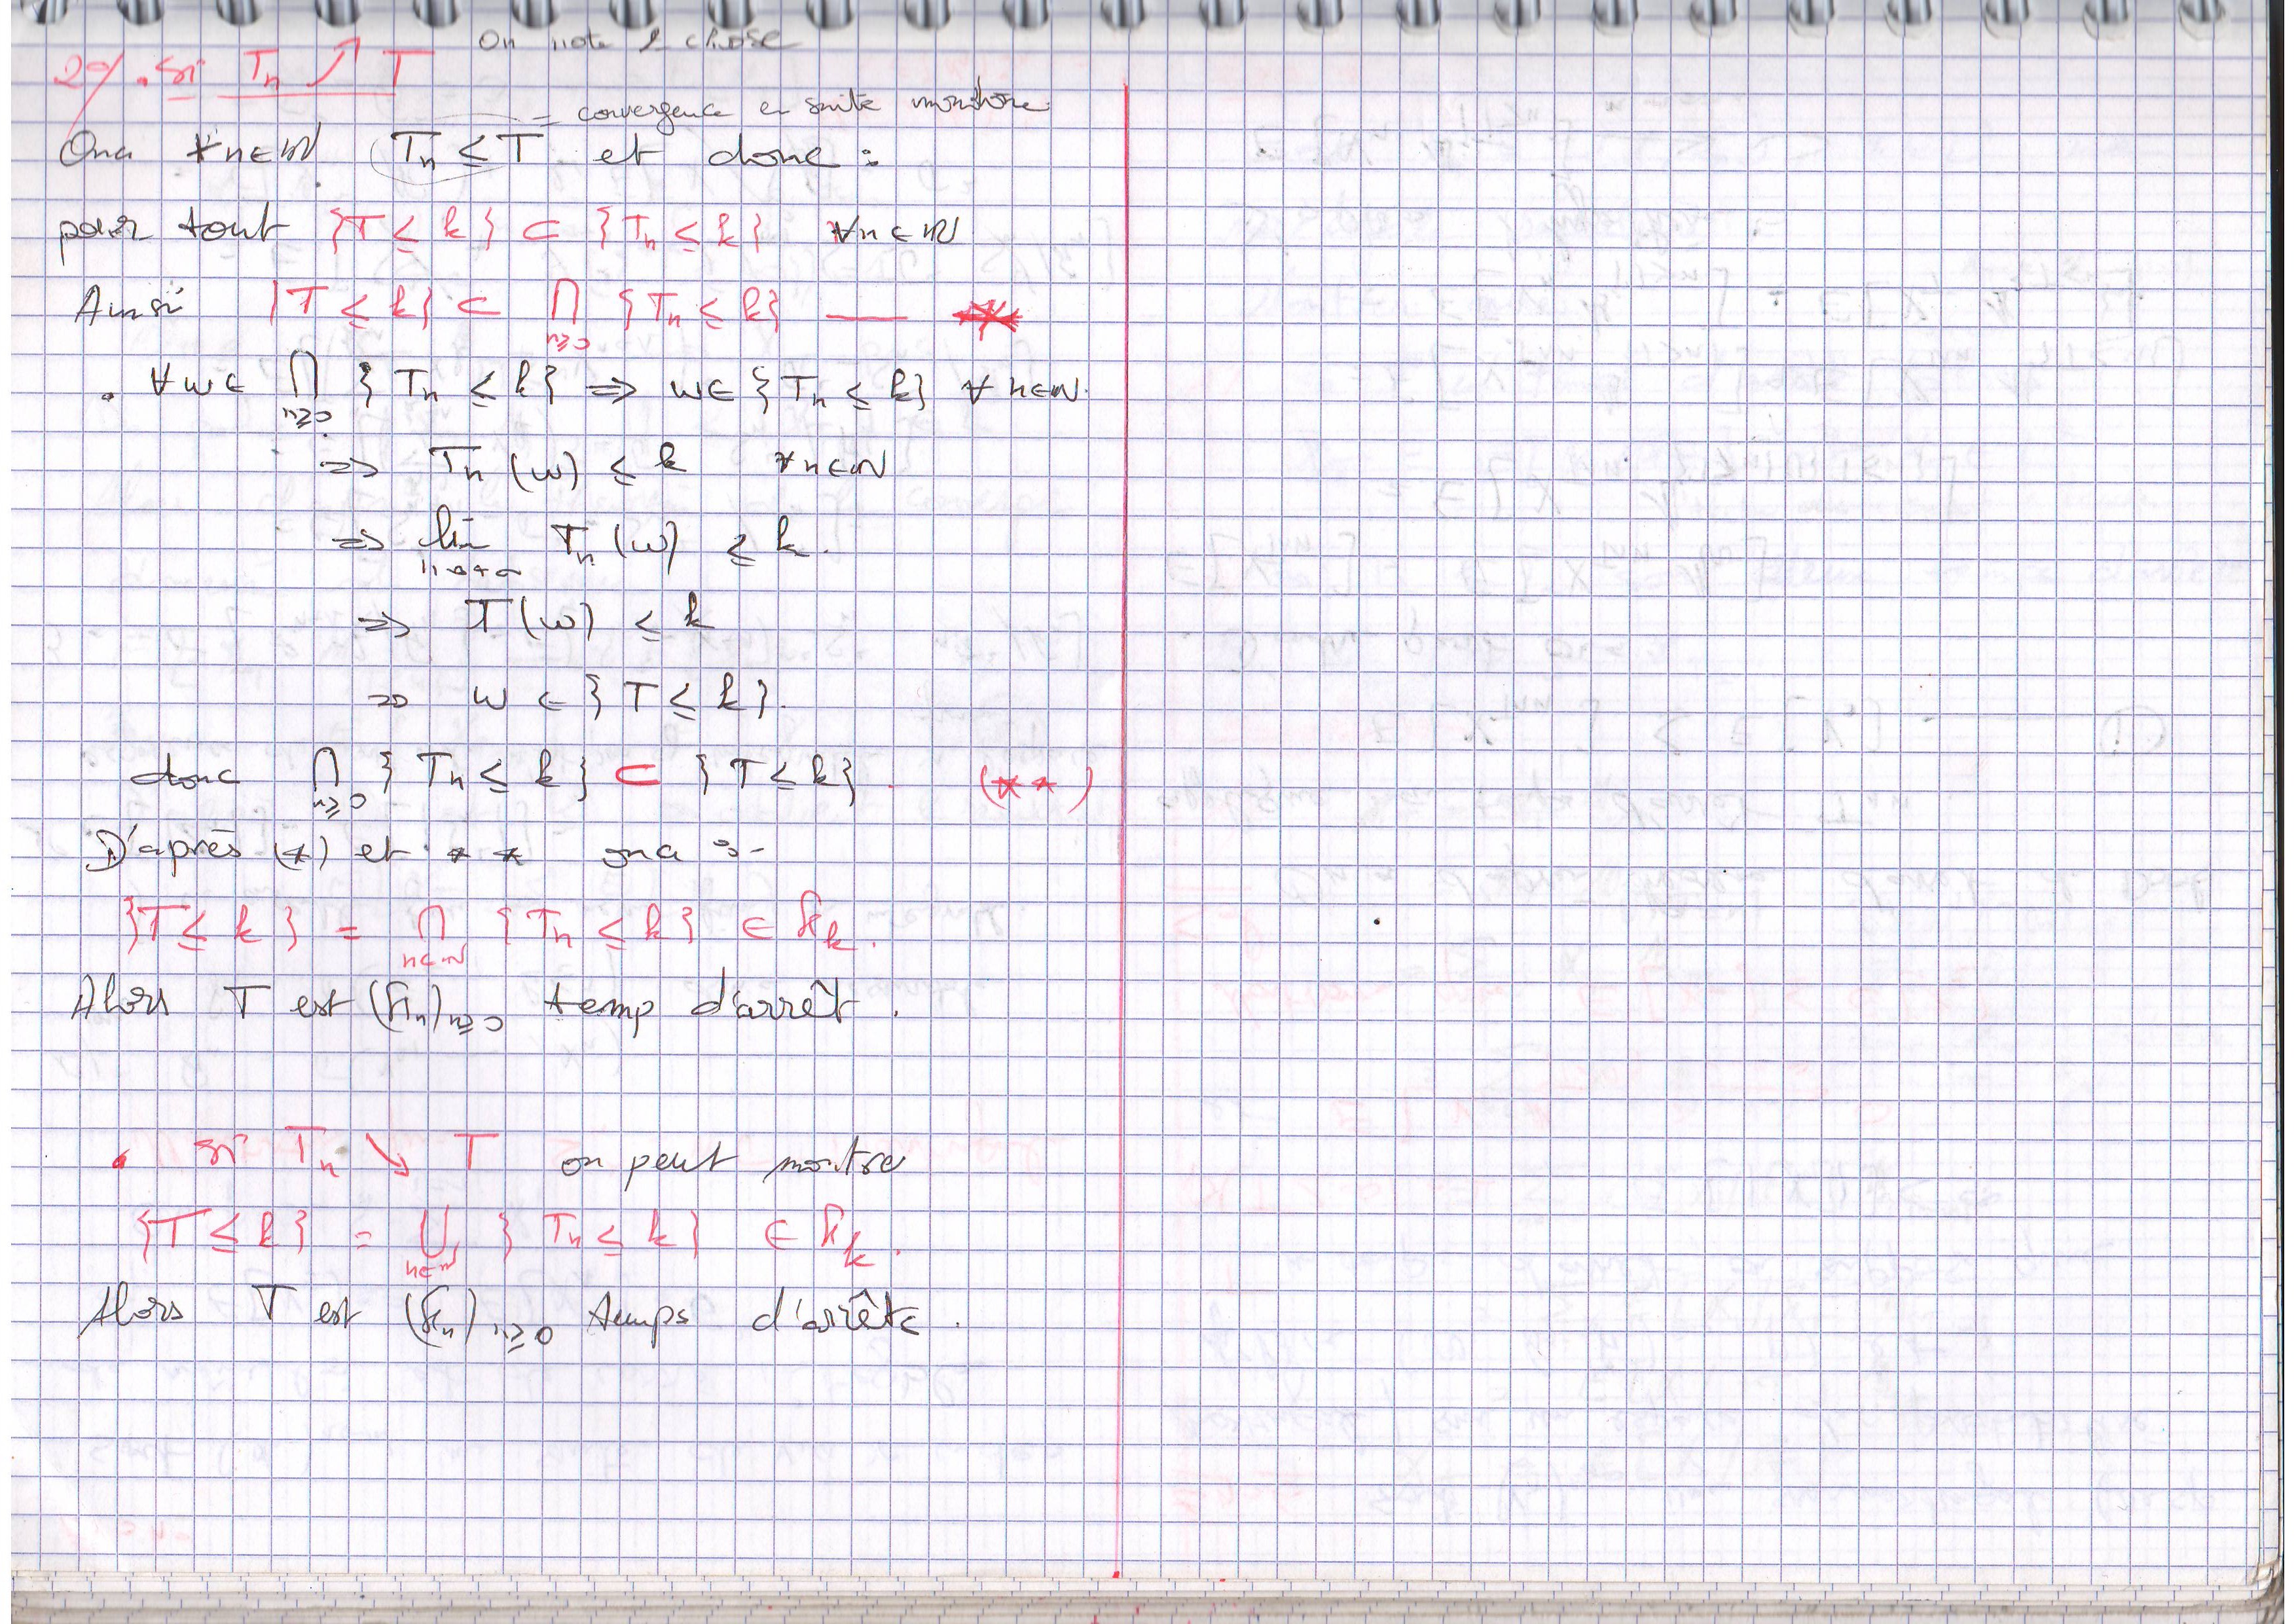 On note 2 chose
2°/. si Tn ↗ T
= convergence en suite monotone
Ona ∀n∈ℕ Tn ≤ T et donc :
pour tout {T ≤ k} ⊂ {Tn ≤ k} ∀n∈ℕ
Ainsi {T ≤ k} ⊂ ⋂_{n≥0} {Tn ≤ k} —— *
. ∀w∈ ⋂_{n≥0} {Tn ≤ k} => w∈{Tn ≤ k} ∀n∈ℕ.
=> Tn(w) ≤ k ∀n∈ℕ
=> lim_{n→+∞} Tn(w) ≤ k.
=> T(w) ≤ k
=> w ∈ {T ≤ k}.
donc ⋂_{n≥0} {Tn ≤ k} ⊂ {T ≤ k}. (**)
D'après (*) et ** ona :-
{T ≤ k} = ⋂_{n∈ℕ} {Tn ≤ k} ∈ ℱk.
Alors T est (ℱn)n≥0 temp d'arrêt.
. si Tn ↘ T on peut montre
{T ≤ k} = ⋃_{n∈ℕ} {Tn ≤ k} ∈ ℱk.
Alors T est (ℱn)n≥0 temps d'arrête.